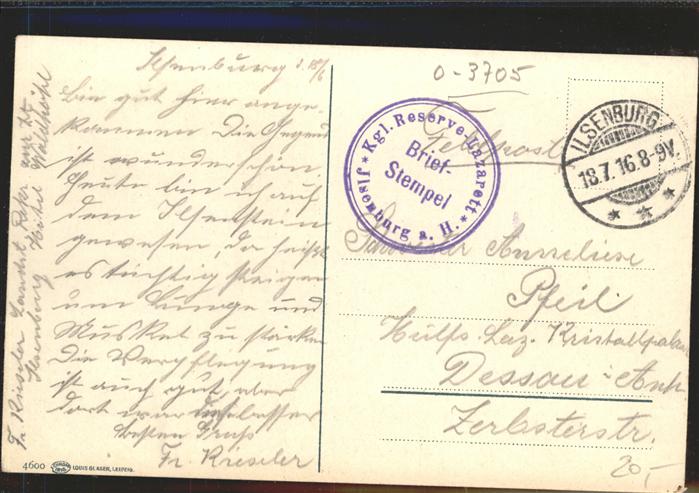 Ilsenburg d. 18/6
Bin gut hier ange-
kommen Die Gegend
ist wunderschön.
Heute bin ich auf
dem Ilsenstein
gewesen, da heißt
es tüchtig steigen
um Lunge und
Muskel zu stärken
Die Verpflegung
ist auch gut, aber
dort war besser
besten Gruß
Fr. Rieseler
Fr Rieseler Landst. Rekr.
Ilsenburg Hotel Waldhöhe
4600 LOUIS GLASER, LEIPZIG.
0-3705
Feldpost
Kgl. Reserve-Lazarett
* Ilsenburg a. H. *
Brief-
Stempel
ILSENBURG
18.7.16.8-9V.
Schwester Anneliese
Pfeil
Hülfs Laz. Kristallpalast
Dessau-Anh
Zerbsterstr.
20,-